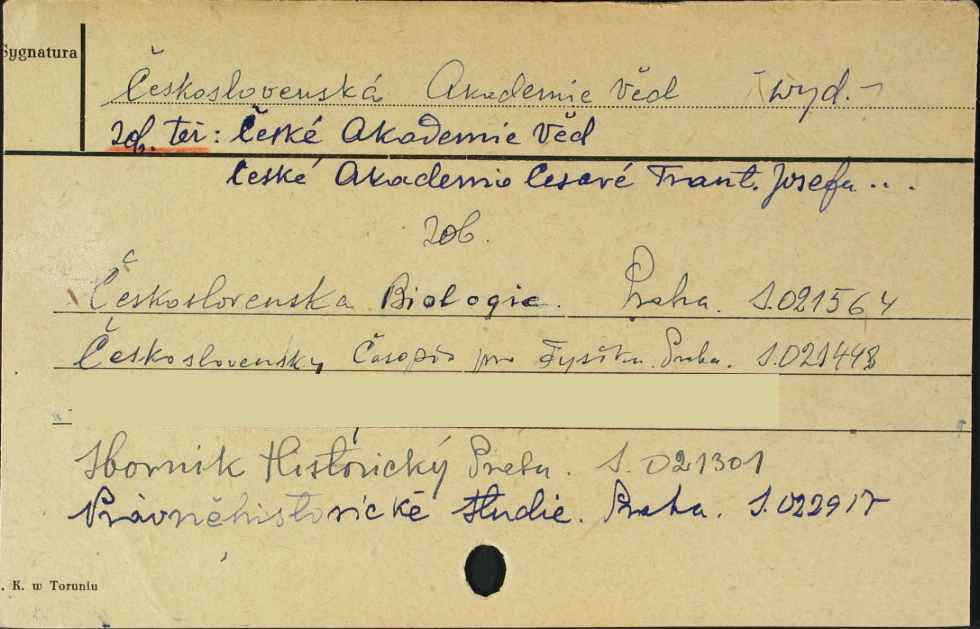 Sygnatura
Československá Akademie Věd (wyd.-
zob. też: České Akademie Věd
České Akademie Cisařé Frant. Josefa ...
zob.
Československa Biologie. Praha. S.021564
Československy Časopis pro Fysiku. Praha. S.021448
Sbornik Historický Praha. S.021301
Právněhistorické studie. Praha. S.022917
. K. w Toruniu